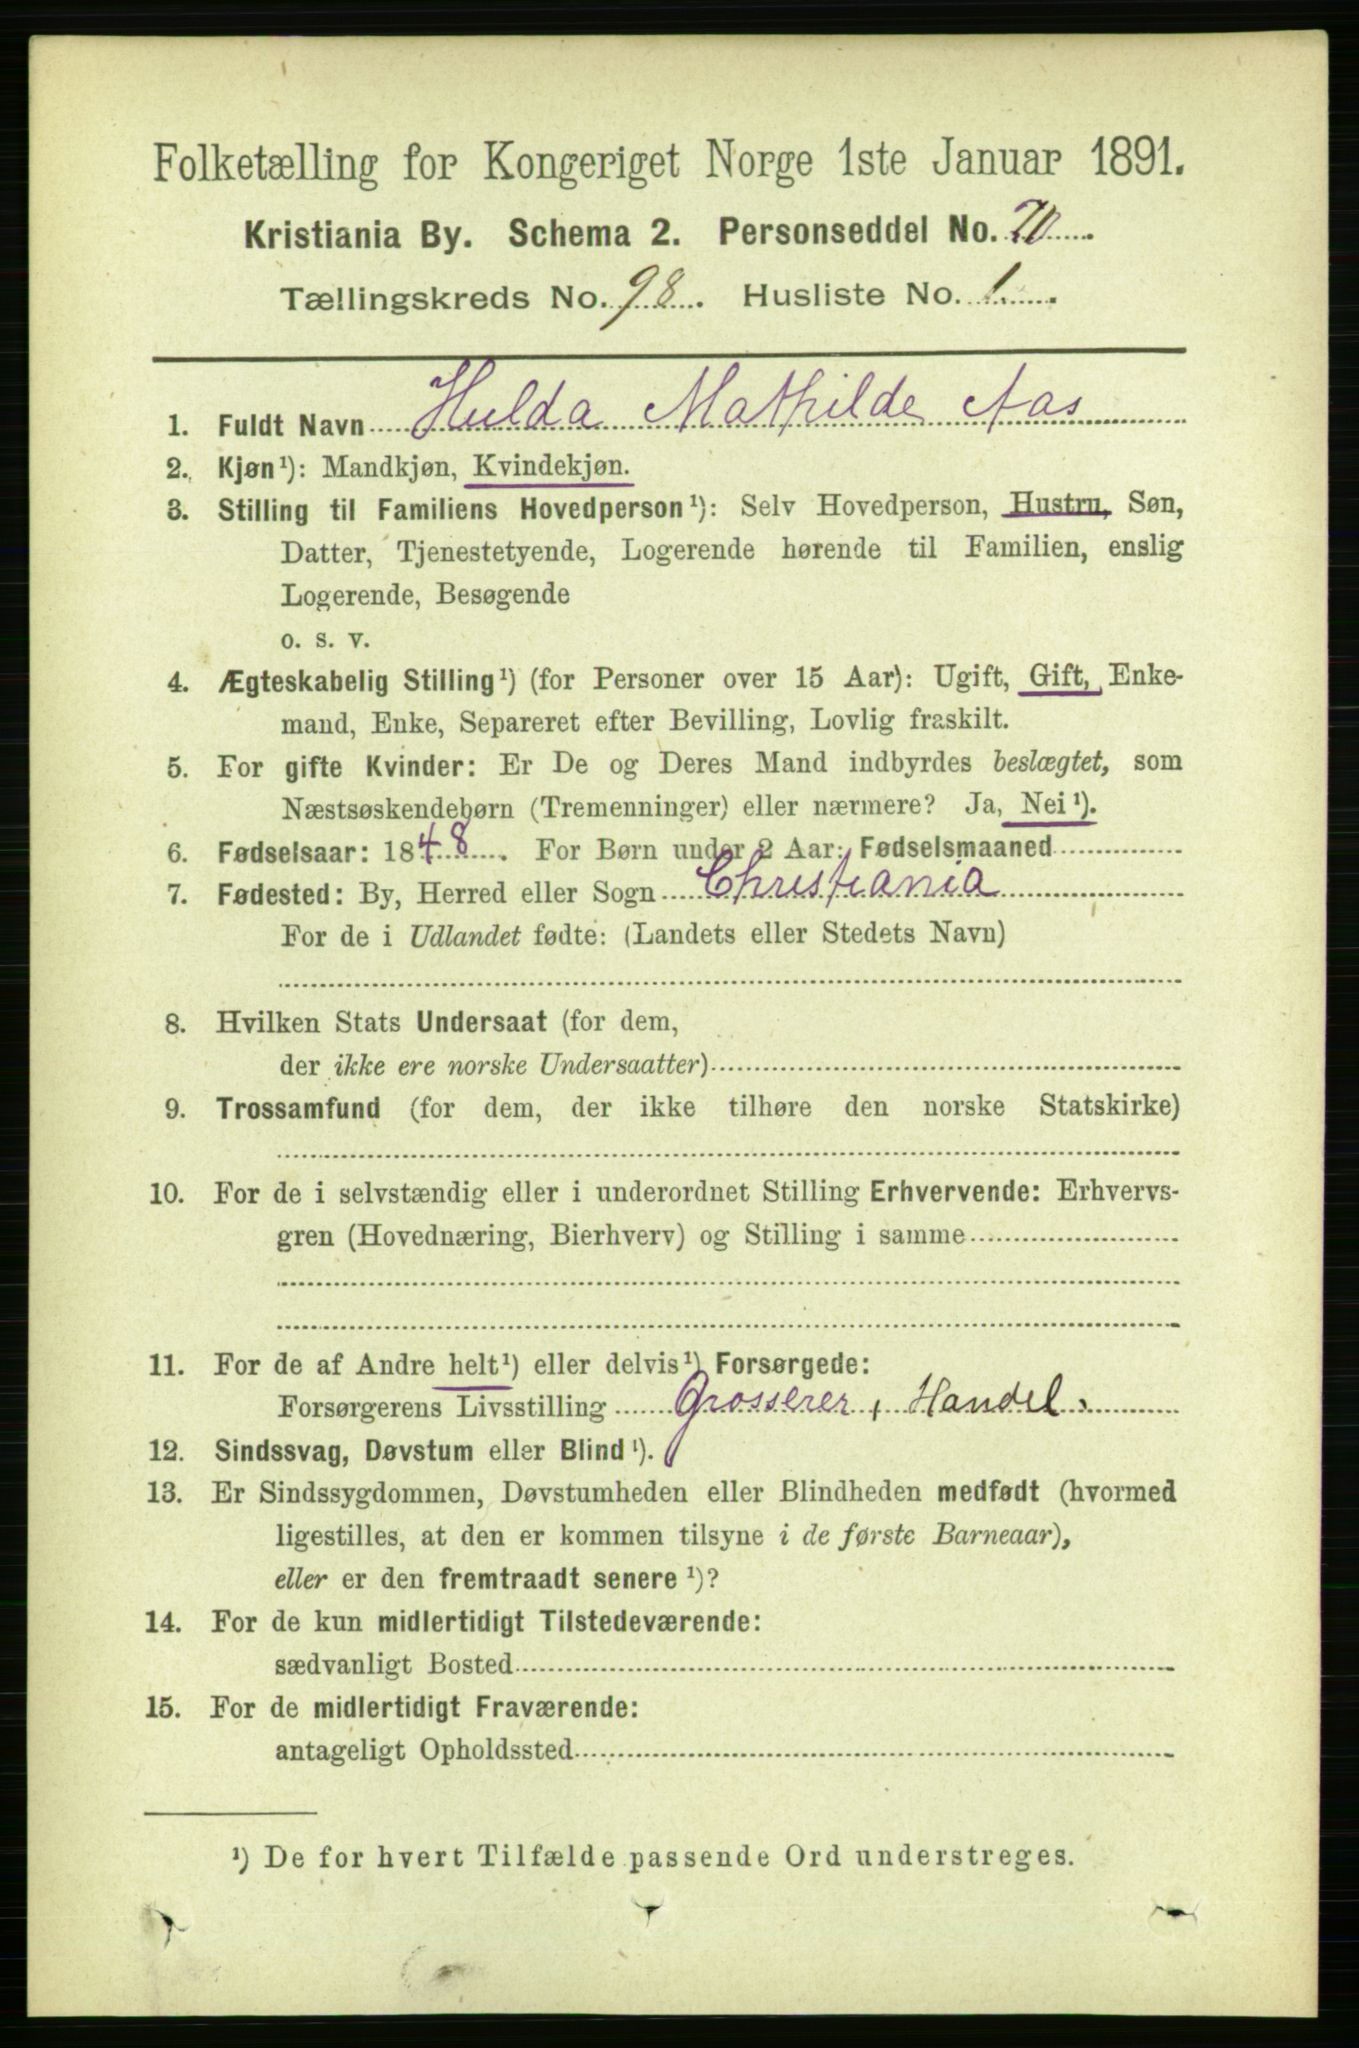 Folketælling for Kongeriget Norge 1ste Januar 1891.
Kristiania By. Schema 2. Personseddel No. 70
Tællingskreds No. 98. Husliste No. 1.
1. Fuldt Navn Hulda Mathilde Aas
2. Kjøn¹): Mandkjøn, Kvindekjøn.
3. Stilling til Familiens Hovedperson¹): Selv Hovedperson, Hustru, Søn,
Datter, Tjenestetyende, Logerende hørende til Familien, enslig
Logerende, Besøgende
o. s. v.
4. Ægteskabelig Stilling¹) (for Personer over 15 Aar): Ugift, Gift, Enke-
mand, Enke, Separeret efter Bevilling, Lovlig fraskilt.
5. For gifte Kvinder: Er De og Deres Mand indbyrdes beslægtet, som
Næstsøskendebørn (Tremenninger) eller nærmere? Ja, Nei¹).
6. Fødselsaar: 1848. For Børn under 2 Aar: Fødselsmaaned
7. Fødested: By, Herred eller Sogn Christiania
For de i Udlandet fødte: (Landets eller Stedets Navn)
8. Hvilken Stats Undersaat (for dem,
der ikke ere norske Undersaatter)
9. Trossamfund (for dem, der ikke tilhøre den norske Statskirke)
10. For de i selvstændig eller i underordnet Stilling Erhvervende: Erhvervs-
gren (Hovednæring, Bierhverv) og Stilling i samme
11. For de af Andre helt¹) eller delvis¹) Forsørgede:
Forsørgerens Livsstilling Grosserer, Handel.
12. Sindssvag, Døvstum eller Blind¹).
13. Er Sindssygdommen, Døvstumheden eller Blindheden medfødt (hvormed
ligestilles, at den er kommen tilsyne i de første Barneaar),
eller er den fremtraadt senere¹)?
14. For de kun midlertidigt Tilstedeværende:
sædvanligt Bosted
15. For de midlertidigt Fraværende:
antageligt Opholdssted
¹) De for hvert Tilfælde passende Ord understreges.